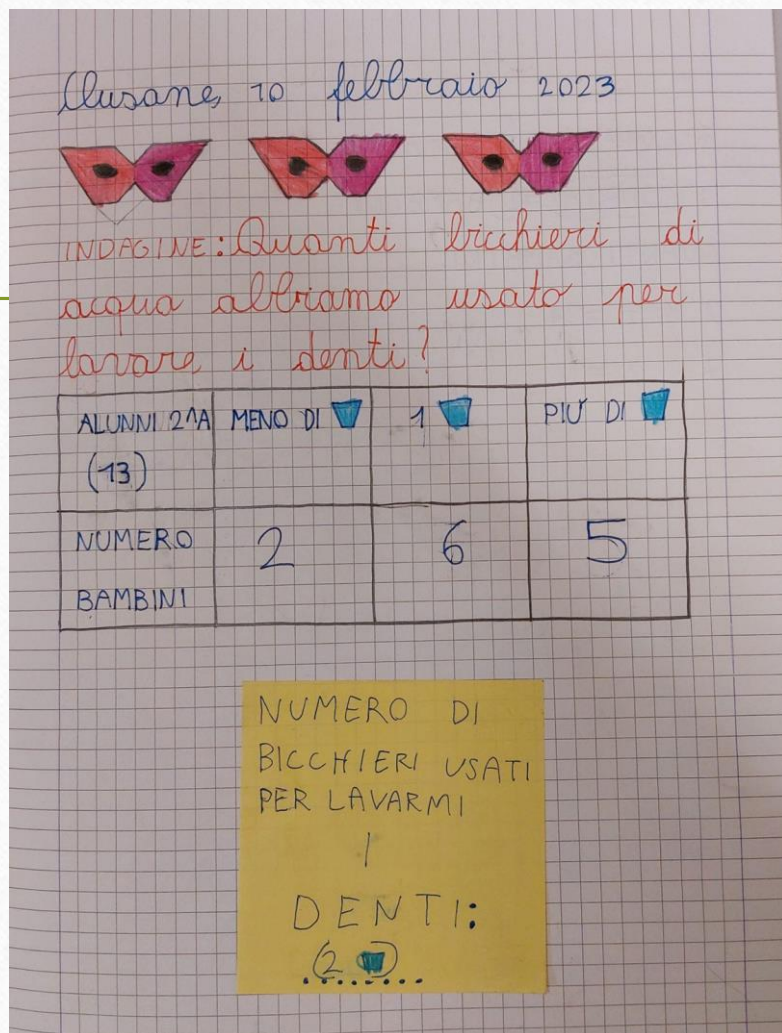 Clusane, 10 febbraio 2023
INDAGINE: Quanti bicchieri di
acqua abbiamo usato per
lavare i denti?
ALUNNI 2^A MENO DI 1 PIU' DI
(13)
NUMERO 2 6 5
BAMBINI
NUMERO DI
BICCHIERI USATI
PER LAVARMI
I
DENTI:
(2 )
........